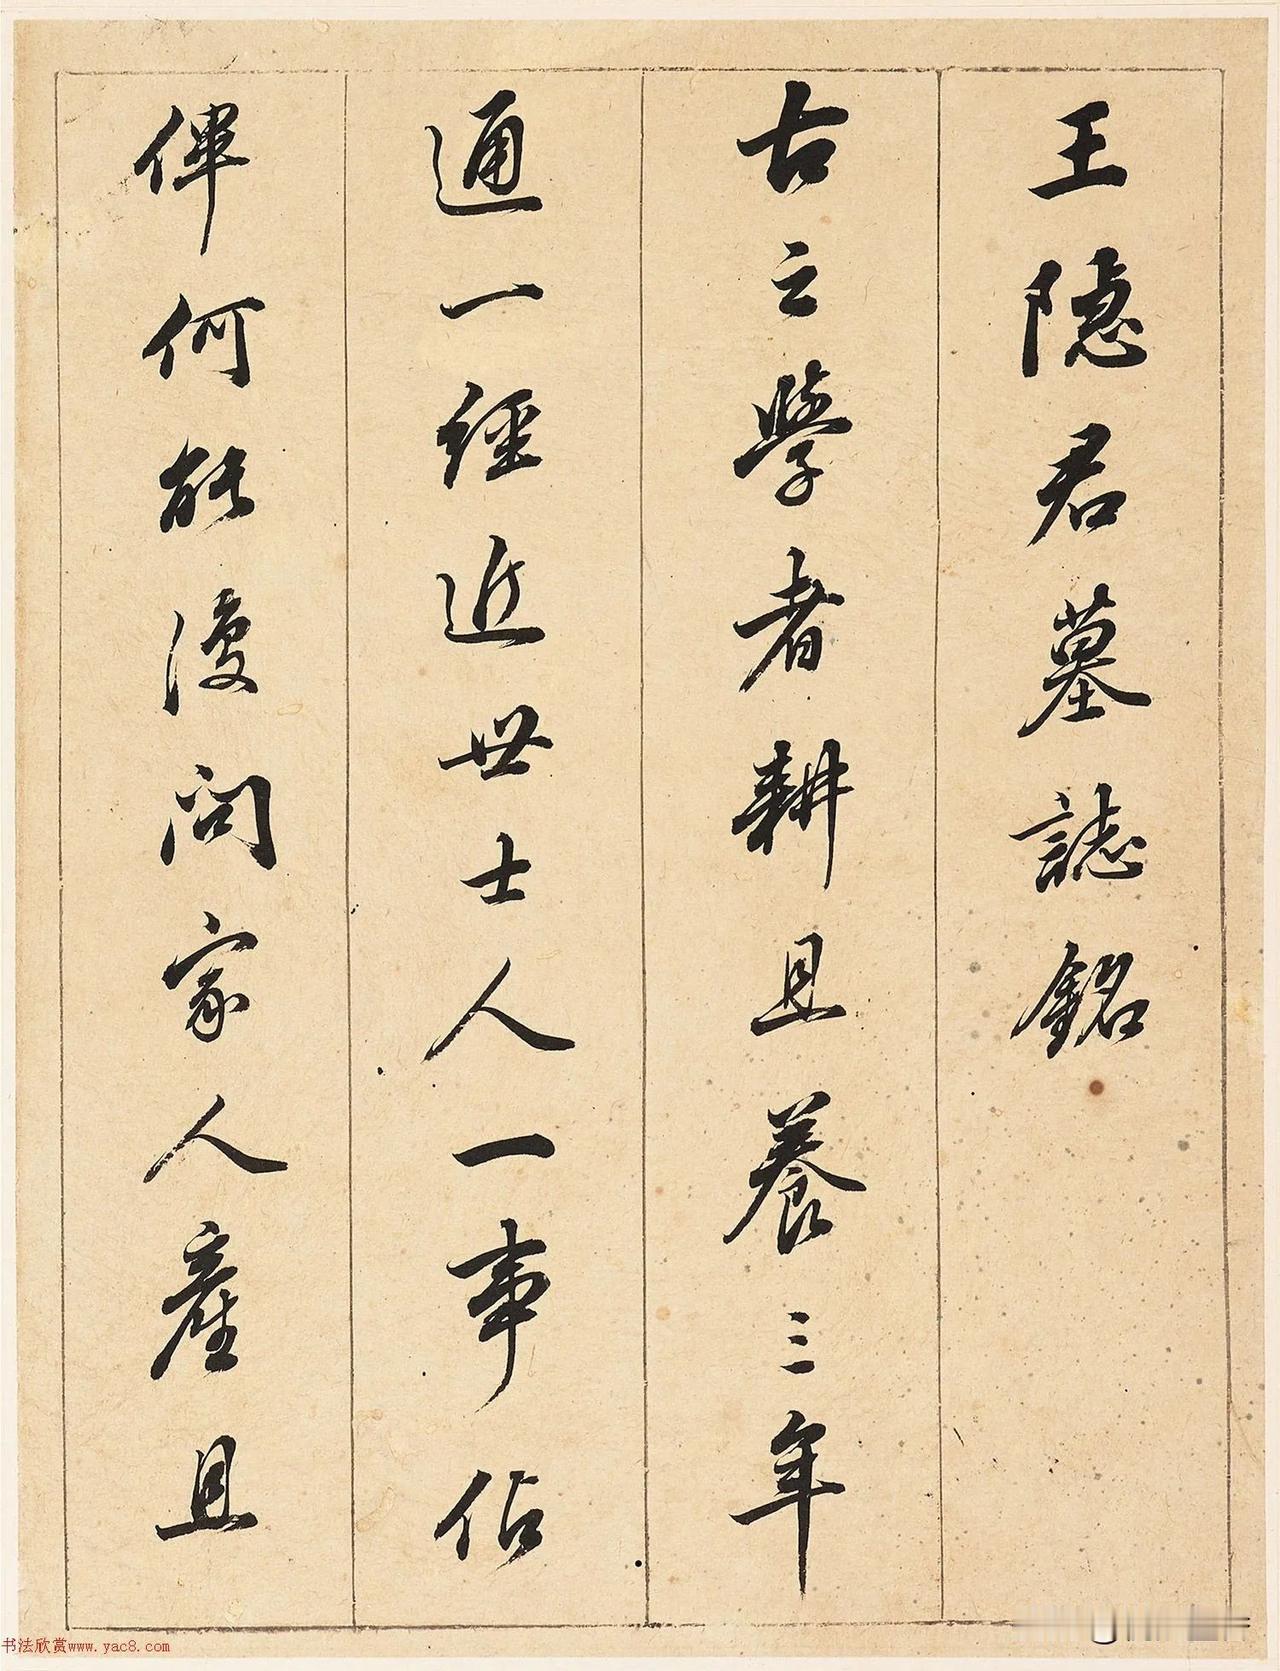 王隱君墓誌銘
古之學者耕且養三年
通一經近世士人一事佔
俾何能復問家人產且
书法欣赏www.yac8.com